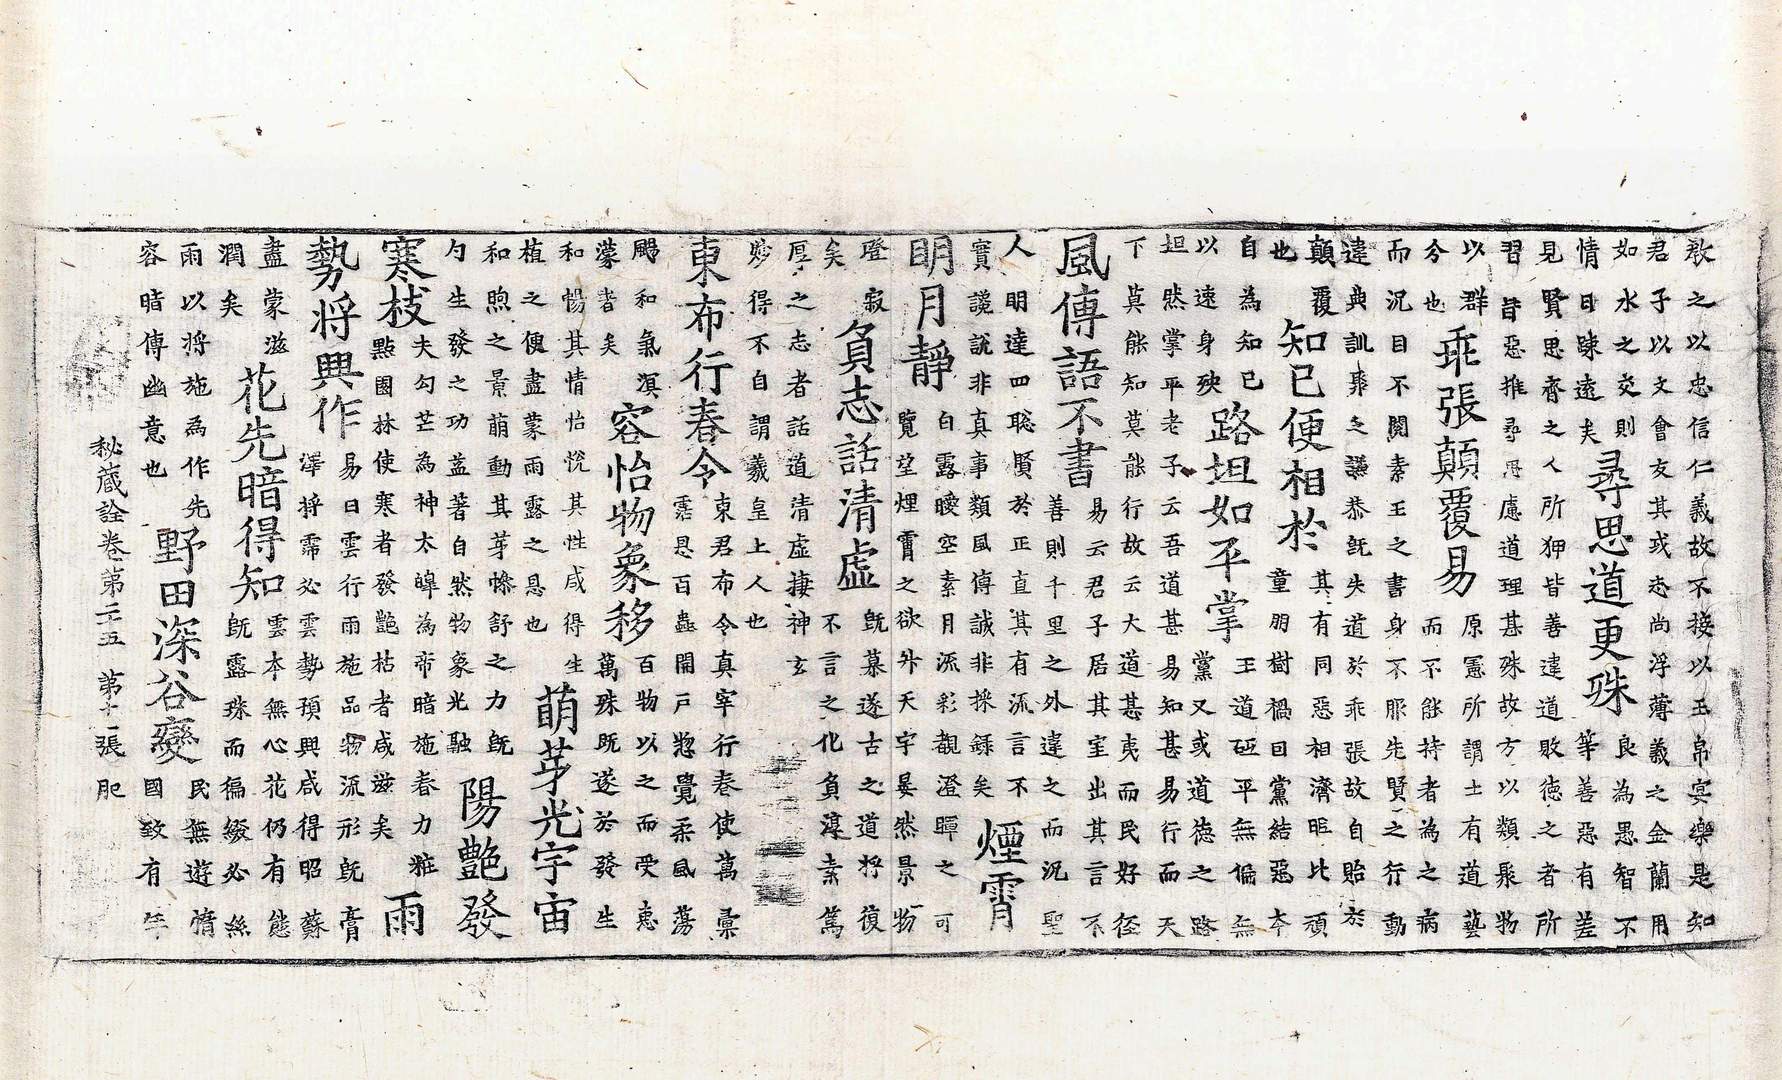 敢之以忠信仁義故不接以玉帛宴樂是知
君子以文會友其或志尚浮薄義之金蘭用
如水之交則
情日踈遠矣
尋思道更殊
良為愚智不
等善惡有差
見賢思齊之人所狎皆善達道敗徳之者所
習皆惡推尋思慮道理甚殊故方以類聚物
以群
今也
乖張顛覆易
原憲所謂士有道藝
而不能持者為之病
而況目不閱素王之書身不服先賢之行動
違典訓棄之謙恭旣失道於乖張故自貽於
顛覆
也
知己便相於
其有同惡相濟昵比頑
童朋樹禍曰黨結惡本
自為知己
以速身殃
路坦如平掌
王道砥平無偏無
黨又或道徳之路
坦然掌平老子云吾道甚易知甚易行而天
下莫能知莫能行故云大道甚夷而民好徑
風傳語不書
易云君子居其室出其言不
善則千里之外違之而況聖
人明達四聦賢於正直其有流言不
實讒說非真事類風傳誠非採録矣
煙霄
明月靜
白露曖空素月流彩覩澄暉之可
覽望煙霄之欲外天宇晏然景物
澄寂
矣
負志話清虛
旣慕遂古之道將復
不言之化負淳素篤
厚之志者話道清虛捿神玄
妙得不自謂羲皇上人也
東布行春令
東君布令真宰行春使萬彙
霑恩百蟲開戸惣覺柔風蕩
颺和氣溟
濛者矣
容怡物象移
百物以之而受恵
萬殊既遂於發生
和暢其情怡悅其性咸得生
植之便盡蒙雨露之恩也
萌芽光宇宙
和煦之景萌動其芽慘舒之力旣
勺生發之功益著自然物象光融
陽艶發
寒枝
夫勾芒為神太皥為帝暗施春力粧
點園林使寒者發艶枯者咸滋矣
雨
勢將興作
易曰雲行雨施品物流形旣膏
澤將霈必雲勢預興咸得昭蘇
盡蒙滋
潤矣
花先暗得知
雲本無心花仍有態
旣露珠而徧綴必絲
雨以將施為作先
容暗傳幽意也
野田深谷變
民無遊惰
國致有年
秘藏詮卷第二十五 第十一張 肥